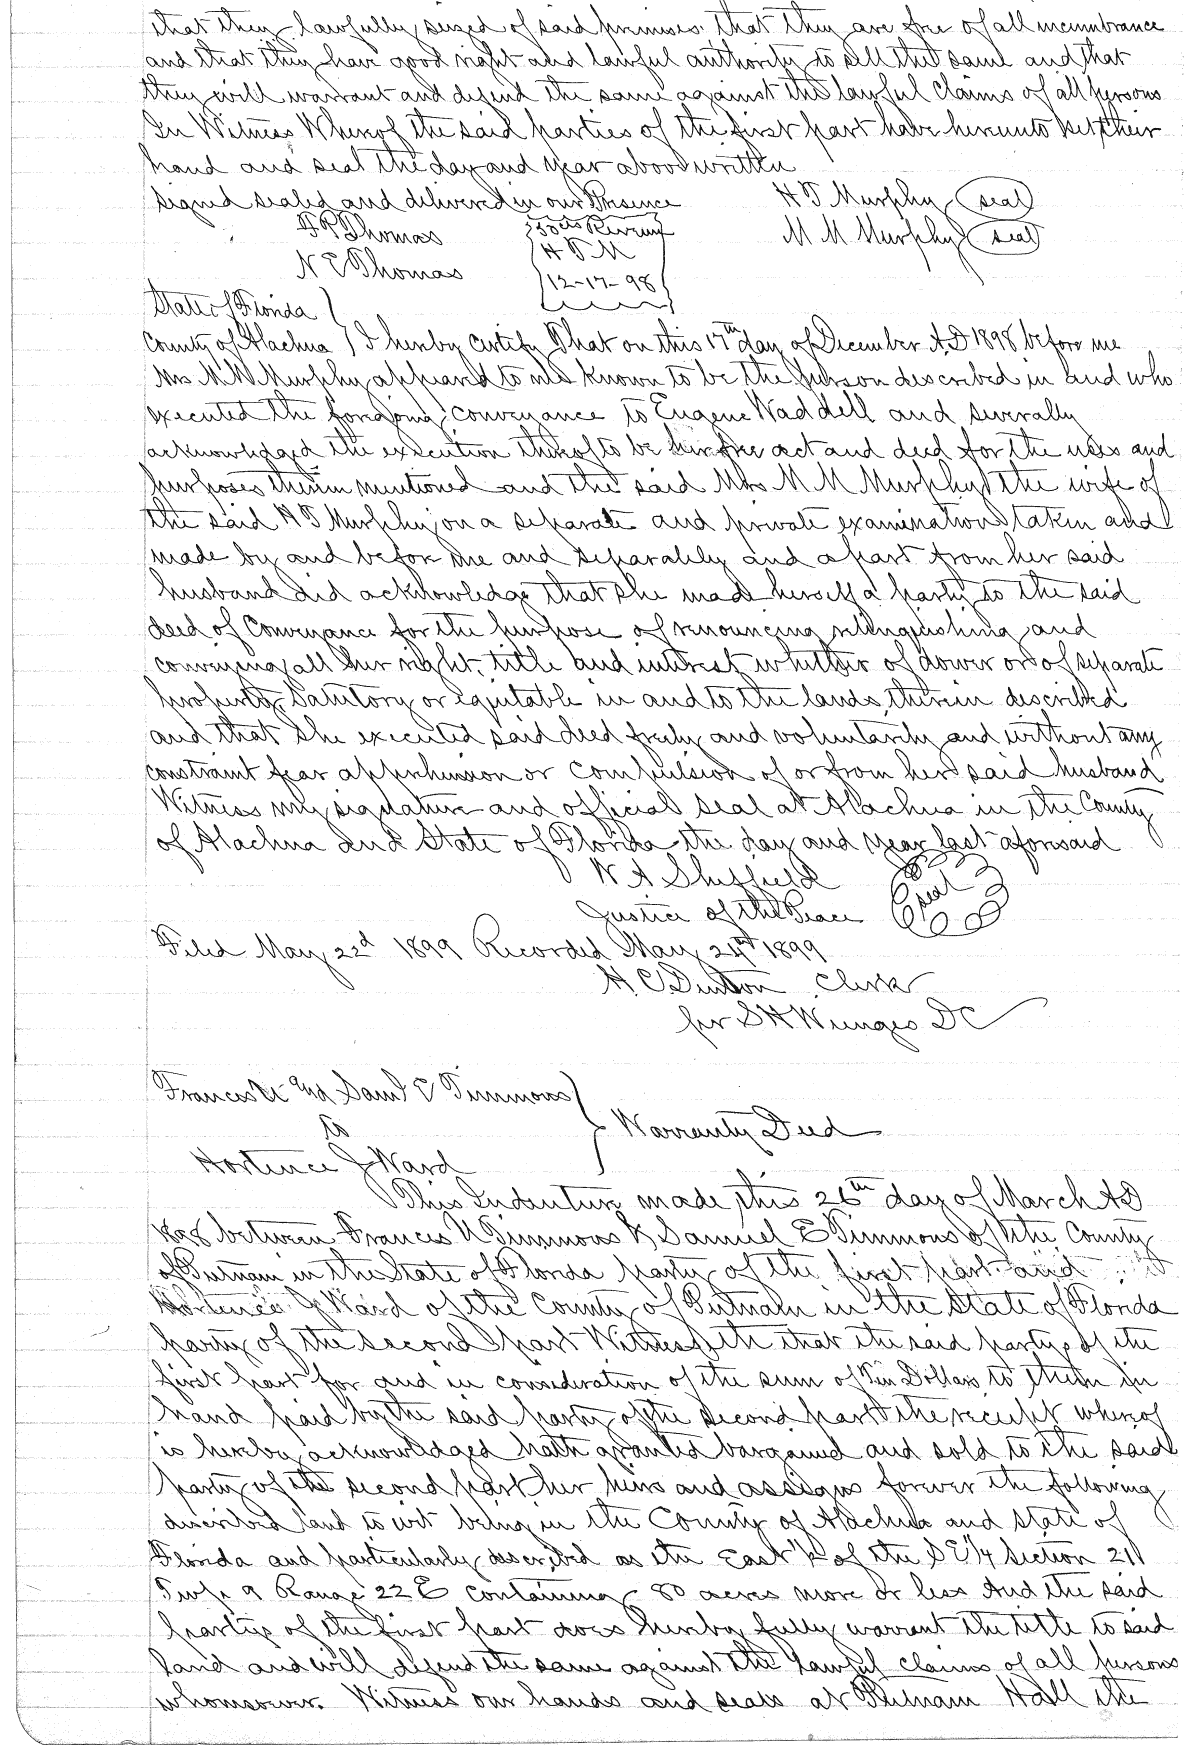 that they lawfully seized of said premises that they are free of all incumbrance
and that they have good right and lawful authority to sell the same and that
they will warrant and defend the same against the lawful claims of all persons
In Witness Whereof the said parties of the first part have hereunto set their
hand and seal the day and year above written
signed sealed and delivered in our Presence
H T Murphy (seal)
M M Murphy (seal)
Thomas
N E Thomas
50cts Revenue
H T M
12-17-98
State of Florida
County of Alachua } I hereby certify That on this 17th day of December A.D 1898 before me
Mrs M M Murphy appeared to me known to be the person described in and who
executed the foregoing conveyance to Eugene Waddell and severally
acknowledged the execution thereof to be her free act and deed for the uses and
purposes therein mentioned and the said Mrs M M Murphy the wife of
the said H T Murphy on a separate and private examination taken and
made by and before me and separately and apart from her said
husband did acknowledge that she made herself a party to the said
deed of Conveyance for the purpose of renouncing relinquishing and
conveying all her right, title and interest whether of dower or of separate
property Statutory or equitable in and to the lands therein described
and that she executed said deed freely and voluntarily and without any
constraint fear apprehension or compulsion of or from her said husband
Witness my signature and official seal at Alachua in the County
of Alachua and State of Florida the day and year last aforesaid
W A Sheffield
Justice of the Peace (seal)
Filed May 22d 1899 Recorded May 24th 1899
H. C Denton Clerk
per S H Wienges D C
Frances U and Saml E Timmons
to } Warranty Deed
Hortence J Ward
This Indenture made this 26th day of March A D
between Frances U Timmons & Samuel E Timmons of the County
of Putnam in the State of Florida party of the first part and
Hortence J Ward of the County of Putnam in the State of Florida
party of the second part Witnesseth that the said party of the
first part for and in consideration of the sum of Ten Dollars to them in
hand paid by the said party of the second part the receipt whereof
is hereby acknowledged hath granted bargained and sold to the said
party of the second part her heirs and assigns forever the following
described land to wit being in the County of Alachua and State of
Florida and particularly described as the East ½ of the S E 1/4 Section 21
Twp 9 Range 22 E containing 80 acres more or less And the said
partys of the first part does hereby fully warrant the title to said
land and will defend the same against the lawful claims of all persons
whomsoever. Witness our hands and seals at Putnam Hall the